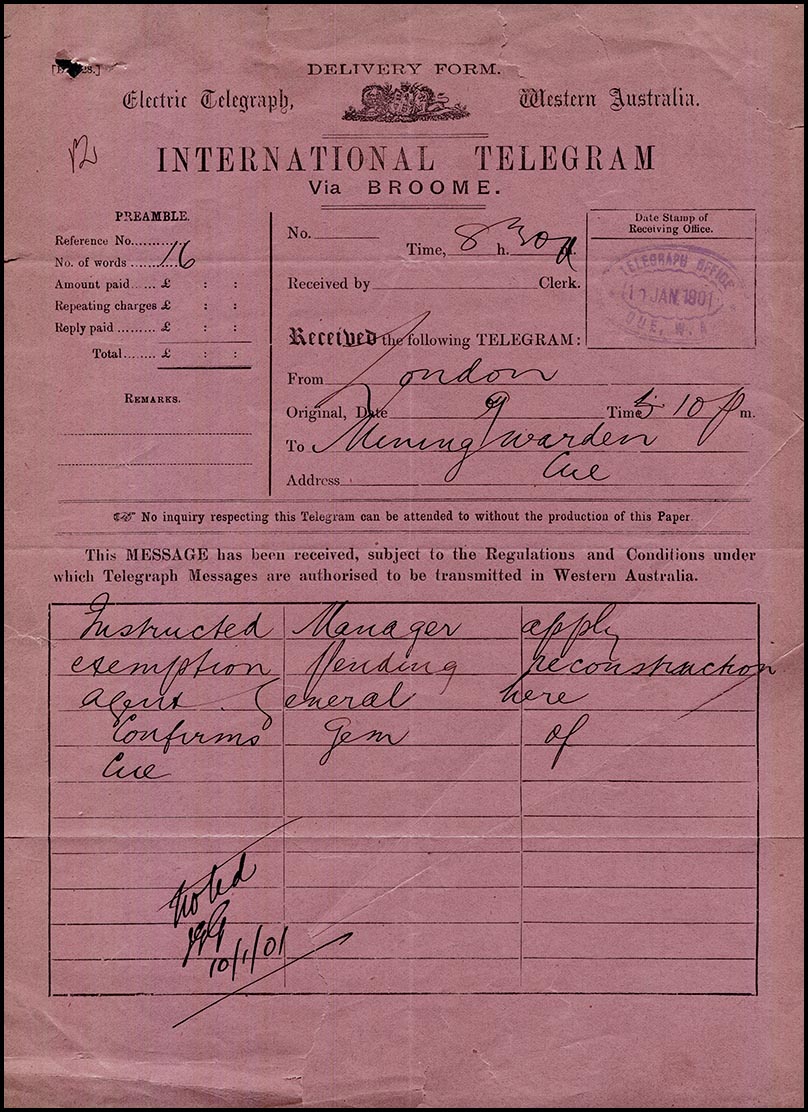 DELIVERY FORM.
Electric Telegraph, Western Australia.
INTERNATIONAL TELEGRAM
Via BROOME.
PREAMBLE.
Reference No..........
No. of words ........16
Amount paid..... £ : :
Repeating charges £ : :
Reply paid ......... £ : :
Total........ £ : :
REMARKS.
No.
Time, 8 h. 30 a m.
Received by Clerk.
Date Stamp of
Receiving Office.
TELEGRAPH OFFICE
JAN 1901
CUE, W.A.
Received the following TELEGRAM:
From London
Original, Date 9 Time 5 10 p m.
To Mining Warden
Address Cue
No inquiry respecting this Telegram can be attended to without the production of this Paper
This MESSAGE has been received, subject to the Regulations and Conditions under
which Telegraph Messages are authorised to be transmitted in Western Australia.
Instructed Manager apply
exemption Pending reconstruction
agent General here
Confirms Gem of
Cue
Noted
10/1/01